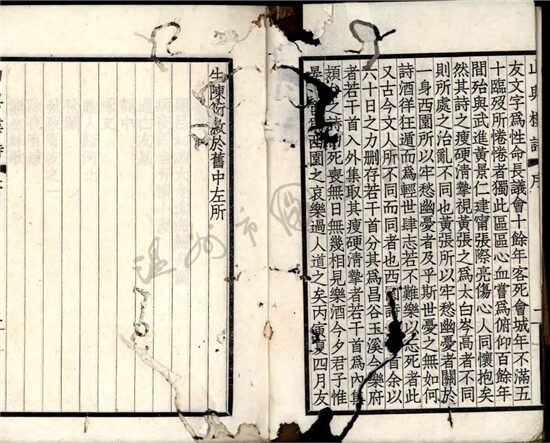 友文字爲性命長議會十餘年客死會城年不滿五
十臨歿所惓惓者獨此區區心血嘗爲俯仰百餘年
間殆與武進黃景仁建甯張際亮傷心人同懷抱矣
然其詩之瘦硬清摯視黃張之爲太白岑高者不同
則所處之治亂不同也黃張所以牢愁幽憂者關於
一身西園所以牢愁幽憂者及乎斯世憂之無如何
詩酒徉狂遁而爲輕世肆志若不難樂以忘死者此
又古今文人所不同而同者也西首余以
六十日之力删存若干首分其爲昌谷玉溪今樂府
者若干首入外集取其瘦硬清摯者若干首爲內集
死喪無日無幾相見樂酒今夕君子惟
西園之哀樂過人道之矣丙夏四月友
生陳衍敘於舊中左所
温州市